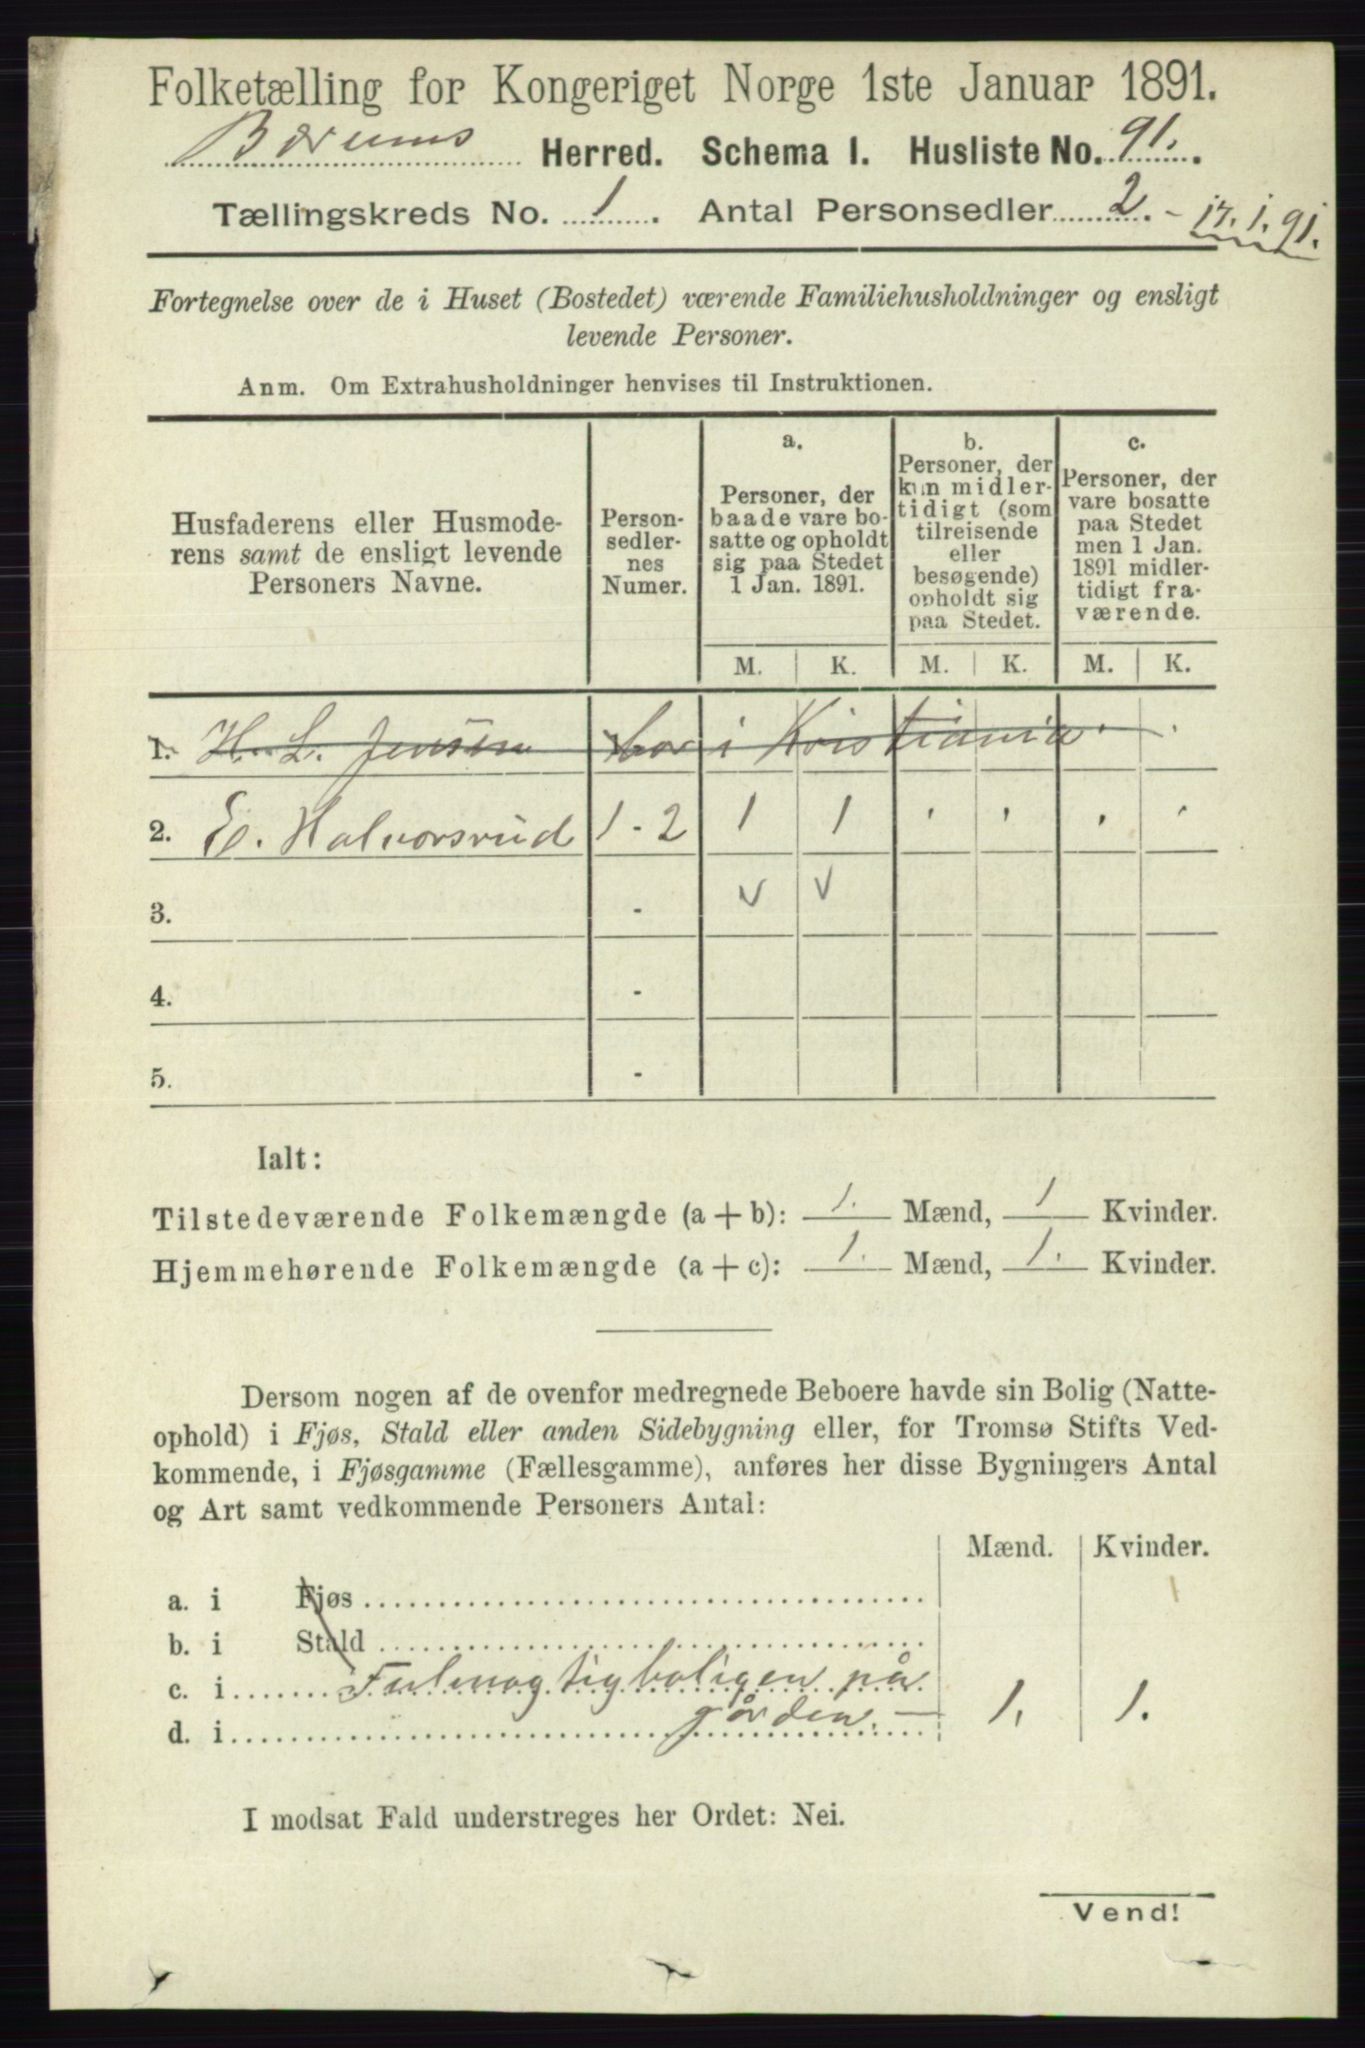 Folketælling for Kongeriget Norge 1ste Januar 1891.
Bærums Herred. Schema I. Husliste No. 91.
Tællingskreds No. 1. Antal Personsedler 2. - 17. 1. 91.
Fortegnelse over de i Huset (Bostedet) værende Familiehusholdninger og ensligt
levende Personer.
Anm. Om Extrahusholdninger henvises til Instruktionen.
Husfaderens eller Husmode-
rens samt de ensligt levende
Personers Navne.
Person-
sedler-
nes
Numer.
a.
Personer, der
baade vare bo-
satte og opholdt
sig paa Stedet
1 Jan. 1891.
b.
Personer, der
kun midler-
tidigt (som
tilreisende
eller
besøgende)
opholdt sig
paa Stedet.
c.
Personer, der
vare bosatte
paa Stedet
men 1 Jan.
1891 midler-
tidigt fra-
værende.
M. K. M. K. M. K.
1. H. L. Jensen bor i Kristiania.
2. E. Halvorsrud 1 - 2 1 1
3. - v v
4. -
5. -
Ialt:
Tilstedeværende Folkemængde (a + b): 1. Mænd, 1 Kvinder.
Hjemmehørende Folkemængde (a + c): 1. Mænd, 1. Kvinder.
Dersom nogen af de ovenfor medregnede Beboere havde sin Bolig (Natte-
ophold) i Fjøs, Stald eller anden Sidebygning eller, for Tromsø Stifts Ved-
kommende, i Fjøsgamme (Fællesgamme), anføres her disse Bygningers Antal
og Art samt vedkommende Personers Antal:
Mænd. Kvinder.
a. i Fjøs
b. i Stald
c. i Fulmagtigboligen på
d. i gården. - 1. 1.
I modsat Fald understreges her Ordet: Nei.
Vend!